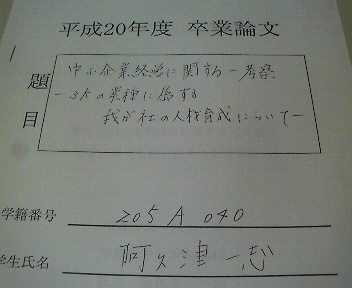 平成20年度 卒業論文
題目
中小企業経営に関する一考察
－3Kの業種に属する
我が社の人材育成について－
学籍番号 205A040
学生氏名 阿久津一志